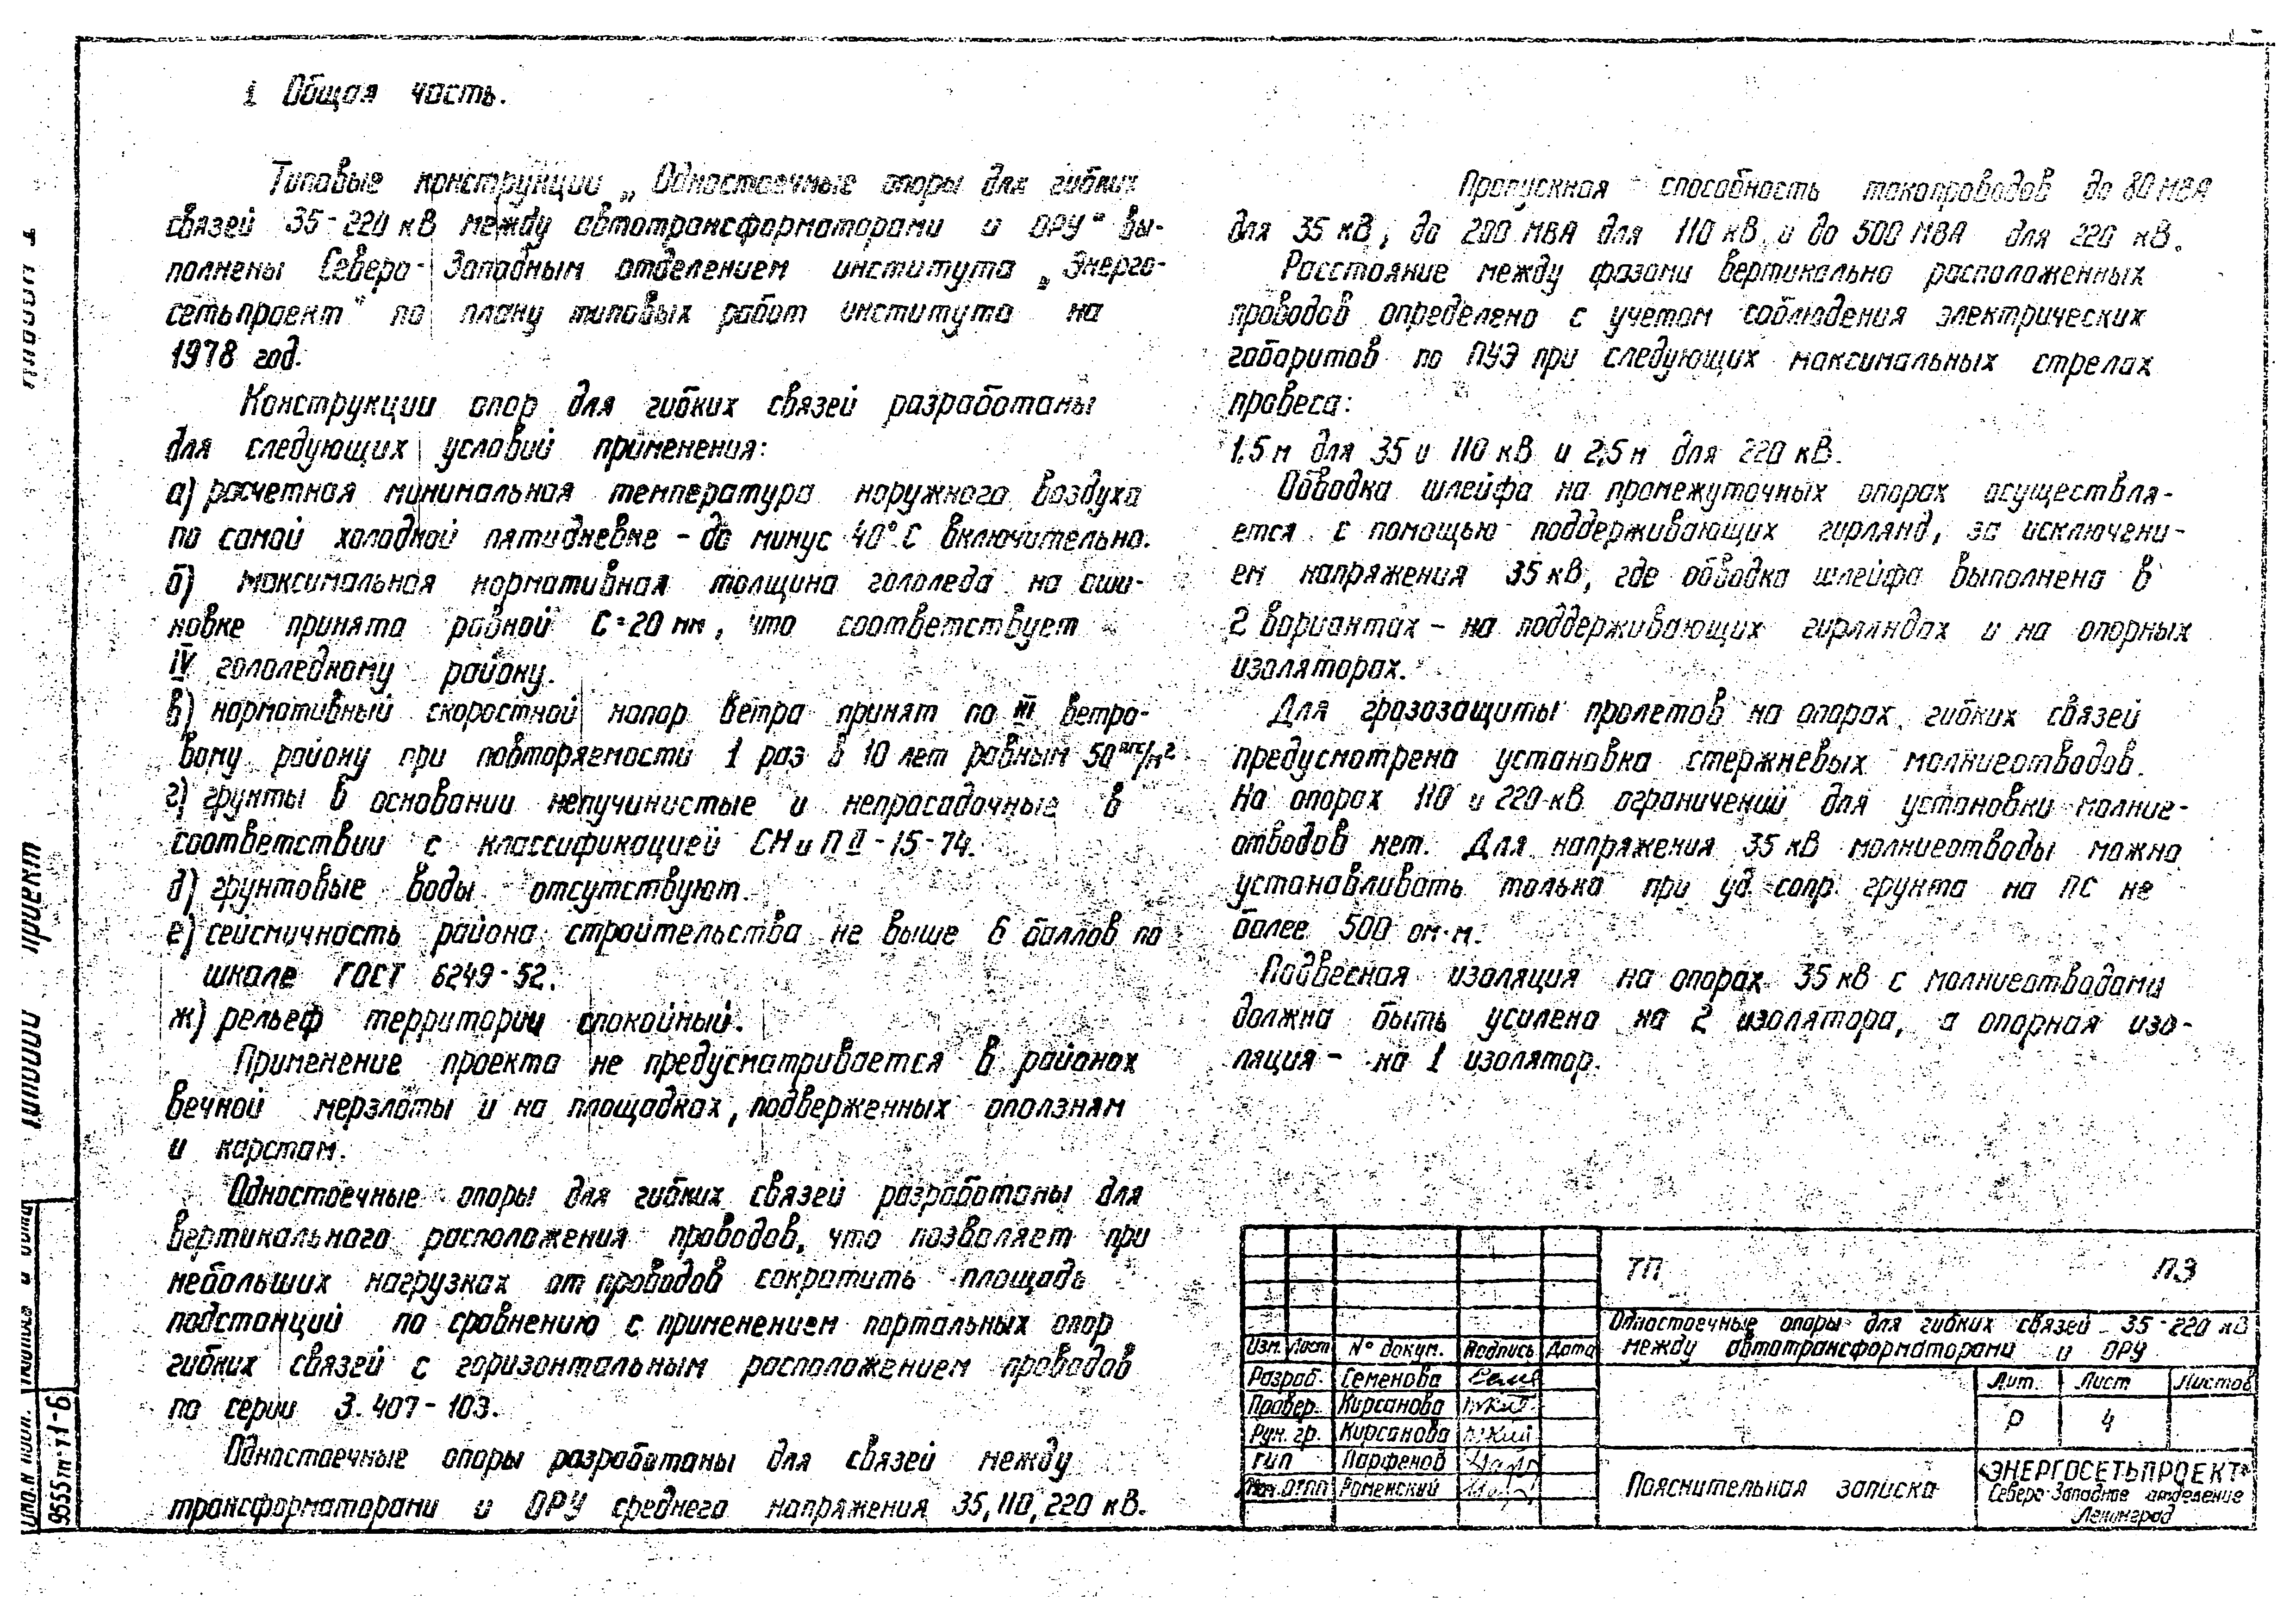 1 Общая часть.
Типовые конструкции „Одностоечные опоры для гибких
связей 35-220 кВ между автотрансформаторами и ОРУ“ вы-
полнены Северо-Западным отделением института „Энерго-
сетьпроект“ по плану типовых работ института на
1978 год.
Конструкции опор для гибких связей разработаны
для следующих условий применения:
а) расчетная минимальная температура наружного воздуха
по самой холодной пятидневке - до минус 40°С включительно.
б) максимальная нормативная толщина гололеда на оши-
новке принята равной С=20 мм, что соответствует
IV гололедному району.
в) нормативный скоростной напор ветра принят по III ветро-
вому району при повторяемости 1 раз в 10 лет равным 50 кгс/м²
г) грунты в основании непучинистые и непросадочные в
соответствии с классификацией СНиП II-15-74.
д) грунтовые воды отсутствуют.
е) сейсмичность района строительства не выше 6 баллов по
шкале ГОСТ 6249-52.
ж) рельеф территории спокойный.
Применение проекта не предусматривается в районах
вечной мерзлоты и на площадках, подверженных оползням
и карстам.
Одностоечные опоры для гибких связей разработаны для
вертикального расположения проводов, что позволяет при
небольших нагрузках от проводов сократить площадь
подстанций по сравнению с применением портальных опор
гибких связей с горизонтальным расположением проводов
по серии 3.407-103.
Одностоечные опоры разработаны для связей между
трансформаторами и ОРУ среднего напряжения 35,110,220 кВ.
Пропускная способность токопроводов до 80 МВА
для 35 кВ, до 200 МВА для 110 кВ и до 500 МВА для 220 кВ.
Расстояние между фазами вертикально расположенных
проводов определено с учетом соблюдения электрических
габаритов по ПУЭ при следующих максимальных стрелах
провеса:
1,5 м для 35 и 110 кВ и 2,5 м для 220 кВ.
Обводка шлейфа на промежуточных опорах осуществля-
ется с помощью поддерживающих гирлянд, за исключени-
ем напряжения 35 кВ, где обводка шлейфа выполнена в
2 вариантах - на поддерживающих гирляндах и на опорных
изоляторах.
Для грозозащиты пролетов на опорах гибких связей
предусмотрена установка стержневых молниеотводов.
На опорах 110 и 220 кВ ограничений для установки молние-
отводов нет. Для напряжения 35 кВ молниеотводы можно
устанавливать только при уд. сопр. грунта на ПС не
более 500 ом·м.
Подвесная изоляция на опорах 35 кВ с молниеотводами
должна быть усилена на 2 изолятора, а опорная изо-
ляция - на 1 изолятор.
ТП ПЗ
Одностоечные опоры для гибких связей 35-220 кВ
между автотрансформаторами и ОРУ
Изм. Лист № докум. Подпись Дата
Разраб. Семенова
Провер. Кирсанова
Рук. гр. Кирсанова
ГИП Парфенов
Нач. ОТПП Роменский
Лит. Лист Листов
Р 4
Пояснительная записка
«ЭНЕРГОСЕТЬПРОЕКТ»
Северо-Западное отделение
Ленинград
Типовой проект
9555тм-т1-6